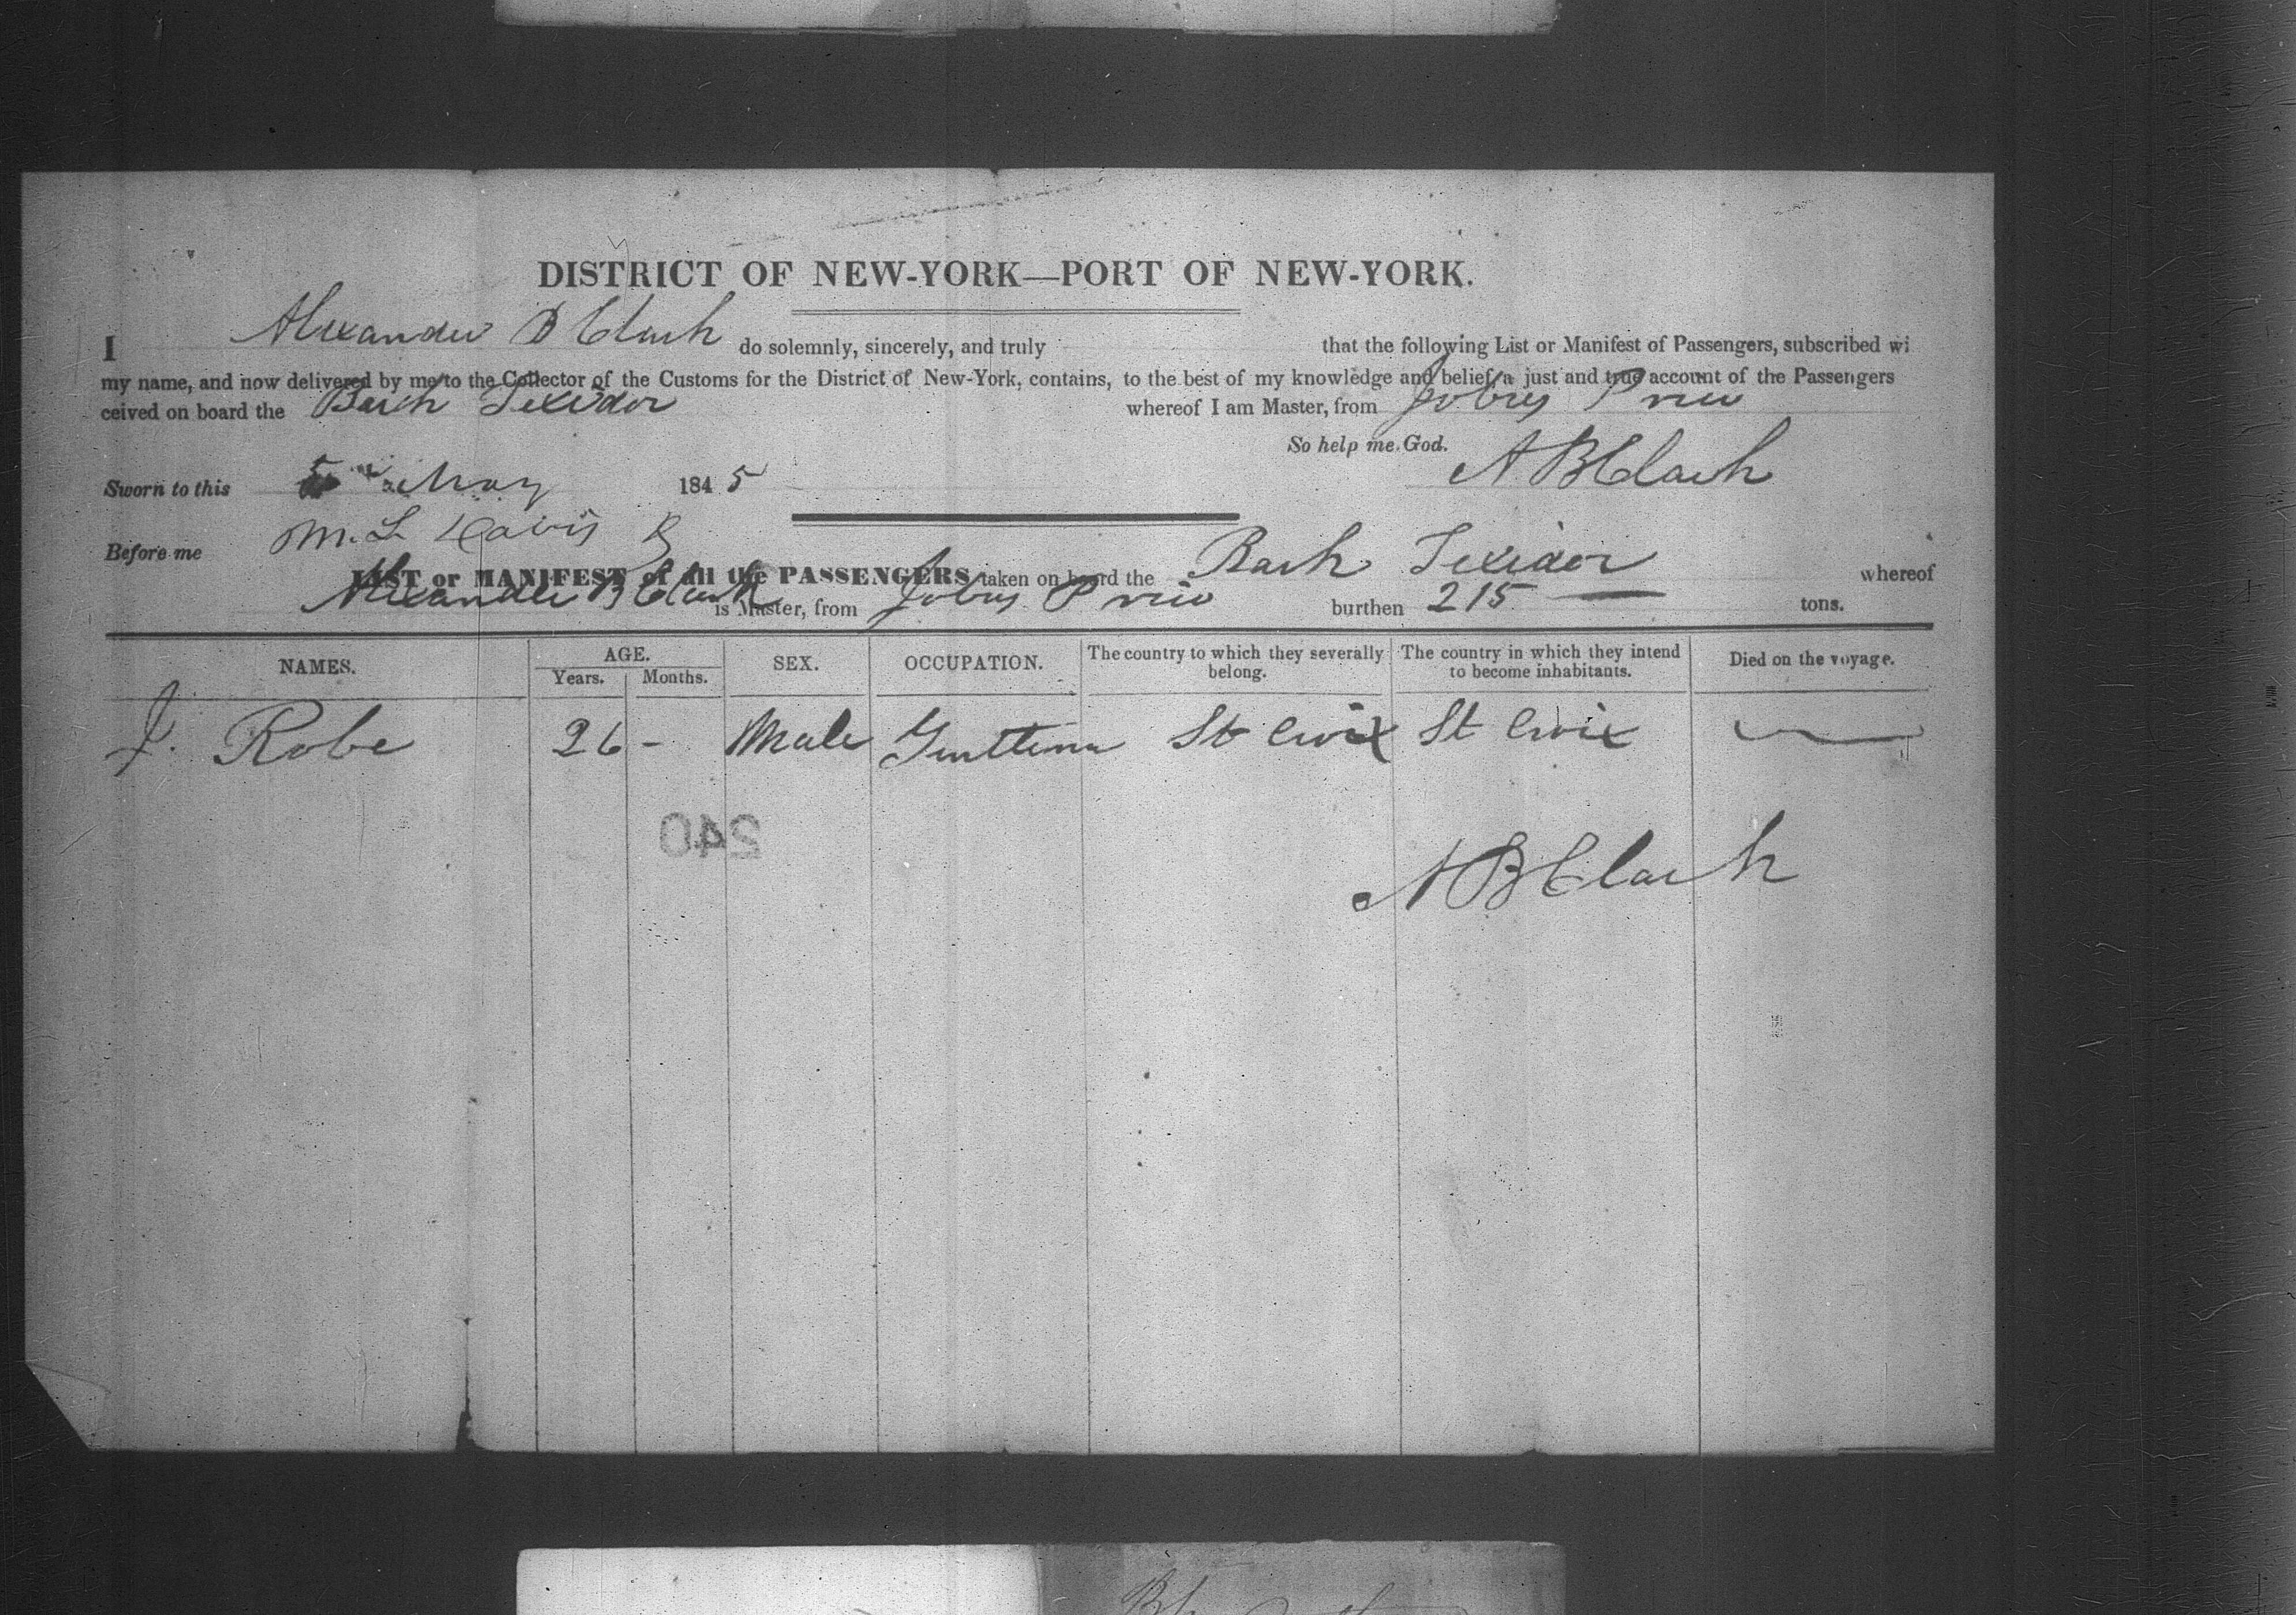 DISTRICT OF NEW-YORK—PORT OF NEW-YORK.
I Alexander B Clark do solemnly, sincerely, and truly that the following List or Manifest of Passengers, subscribed wi
my name, and now delivered by me to the Collector of the Customs for the District of New-York, contains, to the best of my knowledge and belief, a just and true account of the Passengers
ceived on board the Bark Texidor whereof I am Master, from Jobos P rico
So help me God.
A B Clark
Sworn to this 5 May 1845
Before me M. L. Davis
LIST or MANIFEST of all the PASSENGERS taken on board the Bark Texidor whereof
Alexander B Clark is Master, from Jobos P rico burthen 215 — tons.
NAMES. AGE. Years. Months. SEX. OCCUPATION. The country to which they severally belong. The country in which they intend to become inhabitants. Died on the voyage.
J. Robe 26 - Male St Croix St Croix
240
A B Clark